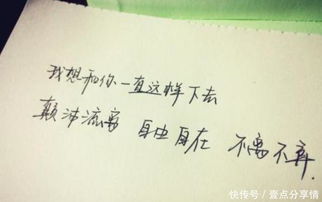 我想和你一直这样下去
颠沛流离 自由自在 不离不弃.
快传号/壹点分享情